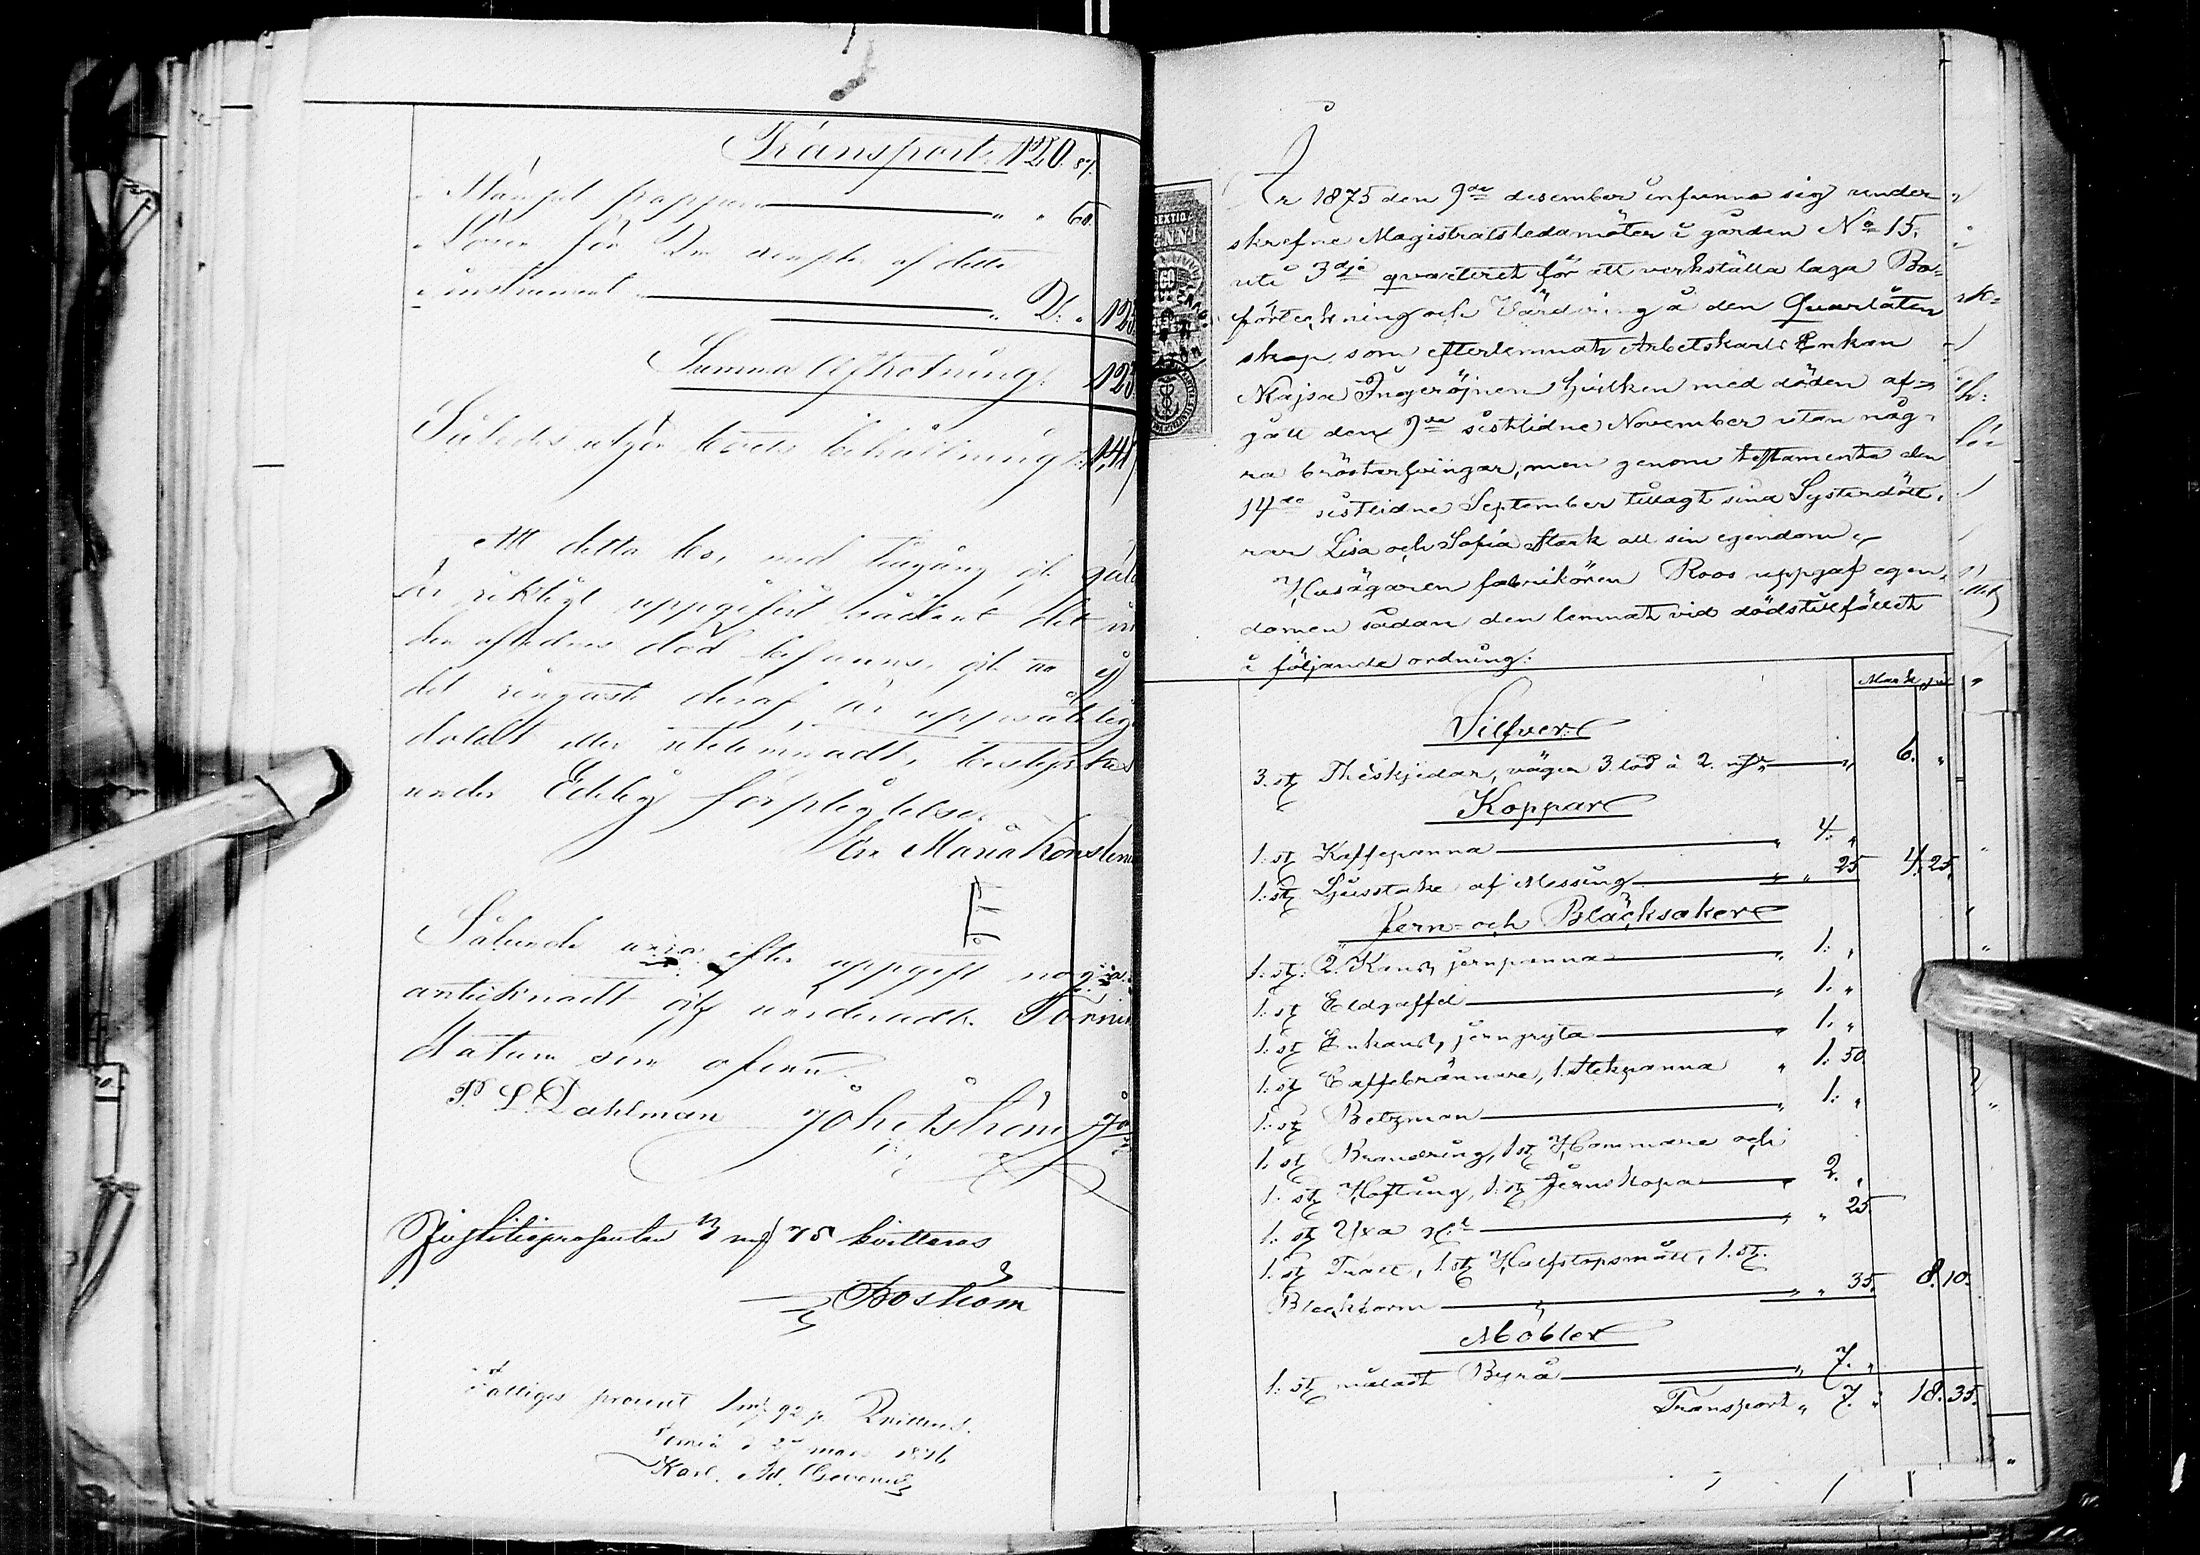 Transport, 120. 87.
Stämpel pappur " " 60.
Lösen för Dm exempler af detta
instrument " D: " 123
Summa Afkortning 123
Således utgör boets behållning 141
Att detta bo, med tillgång och gäld
är riktigt uppgifvit sådant det vid
den aflednes död befanns, och att ej
det ringaste deraf är uppsåtligt
doldt eller utelemnadt, bestyrkes
under Edelig förpligtelse.
Maria
Sålunda vara efter uppgift noga
antecknadt och värderadt. Torneå
datum som ofvan.
P. L. Dahlman
Justitieprosenten 75 kvitteras
Boström
Fattiges procent 1 mk 92 p. Qvitteras.
Torneå d 2 mars 1876
Karl. Ad.
År 1875 den 9de desember infunno sig under
skrefne Magistratsledamöter i gården No 15.
uti 3dje qvarteret för att verkställa laga Bo-
förteckning och Värdering å den Quarlåten
skap, som efterlemnats Arbetskarls Enkan
Kajsa Ingeröjnen hvilken med döden af-
gått den 9de sistlidne November utan någ-
ra bröstarfvingar, men genom testamente den
14de sistlidne September tillagt sina Systerdött-
rar Lisa och Sofia Stark all sin egendom,
Husägaren fabrikören Roos uppgaf egen-
domen sådan den lemnats vid dödstillfället
i följande ordning:
Mark
Silfver
3. st Theskjedar, väger 3. lod à 2. mk " 6. "
Koppar
1. st Kaffepanna " 4. "
1. st Ljusstake af Messing " " 25 4. 25.
Jern- och Bläcksaker
1. st. 2. Kands jernpanna " 1. "
1. st Eldgaffel " 1. "
1. st Enkands jerngryta " 1. "
1. st Caffebrännare, 1. stekpanna " 1. 50
1. st Betzman " 1. "
1. st Brandring, 1 st Hammare och
1. st Hoftång, 1. st Jernskopa " 2. "
1. st Yxa " " 25
1. st Tratt, 1. st Halfstopsmått, 1. st.
Bleckform " " 35. 8. 10.
Möbler
1. st måladt Byrå " 7. "
Transport " 7. " 18. 35.